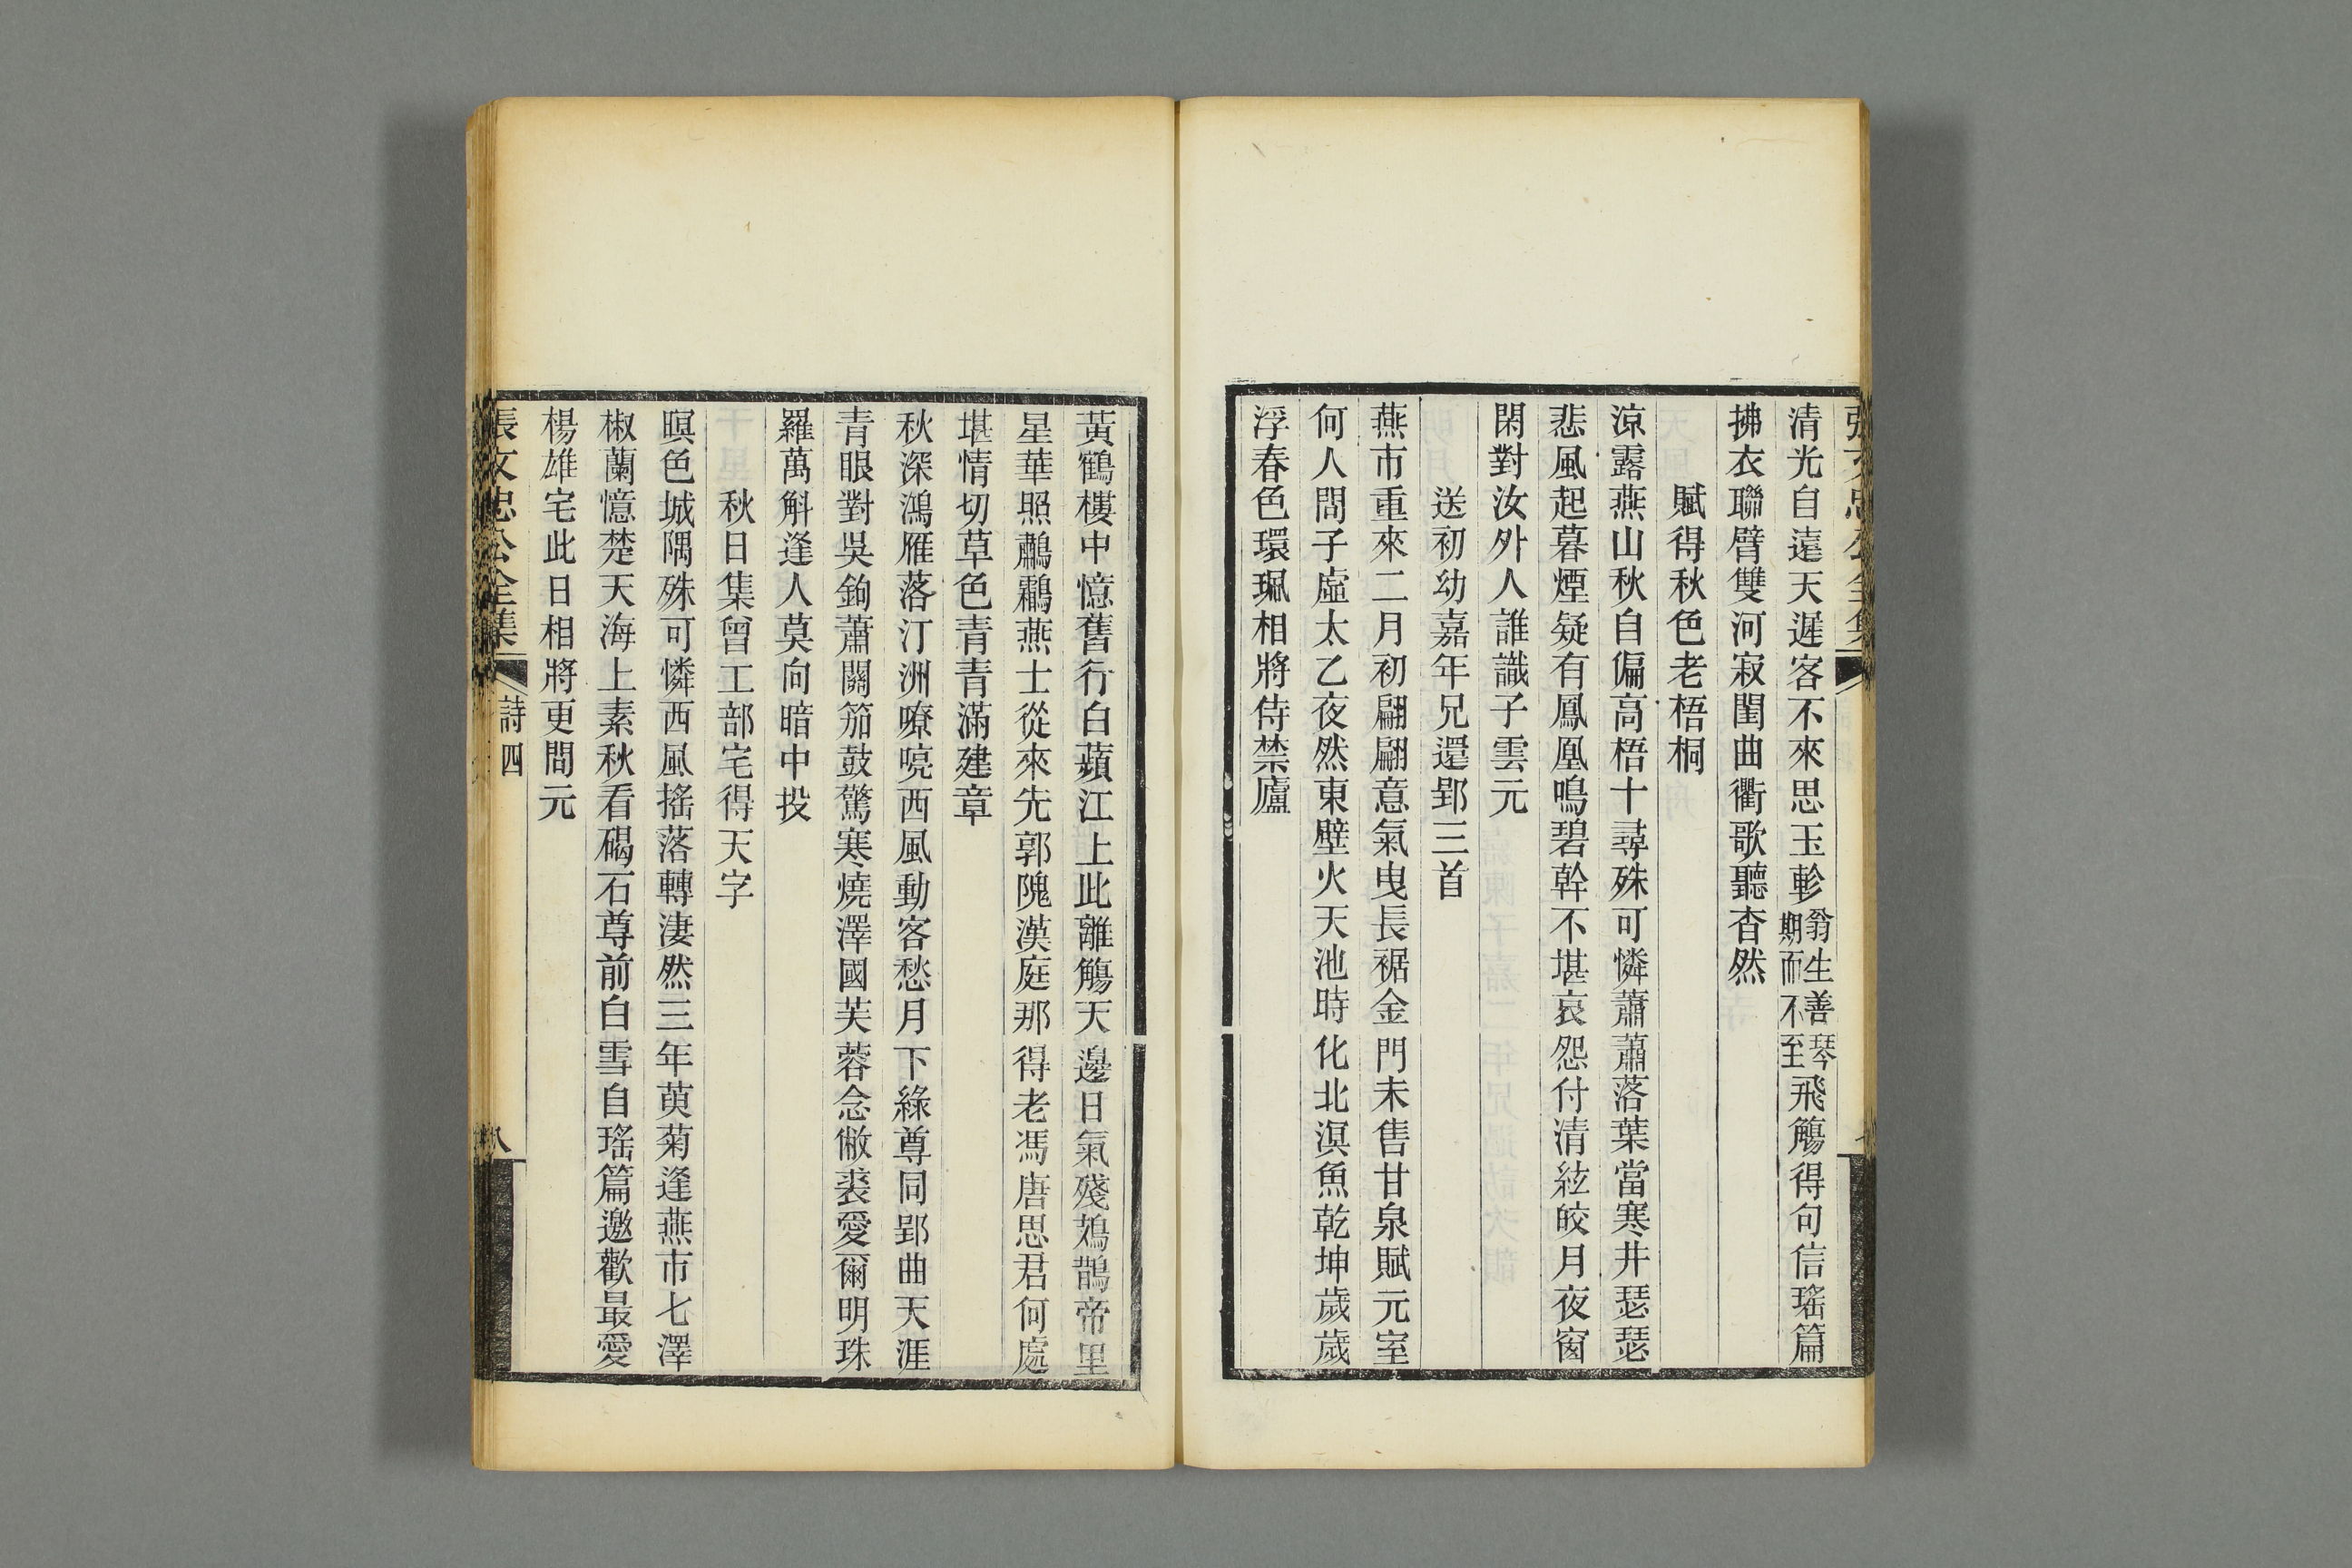 張文忠公全集
清光自遠天遲客不來思玉軫翁生善琴期而不至飛觴得句信瑤篇
拂衣聯臂雙河寂閨曲衢歌聽杳然
賦得秋色老梧桐
涼露燕山秋自偏高梧十尋殊可憐蕭蕭落葉當寒井瑟瑟
悲風起暮煙疑有鳳凰鳴碧幹不堪哀怨付清絃皎月夜窗
閑對汝外人誰識子雲元
送初幼嘉年兄還郢三首
燕市重來二月初翩翩意氣曳長裾金門未售甘泉賦元室
何人問子虛太乙夜然東壁火天池時化北溟魚乾坤歲歲
浮春色環珮相將侍禁廬
黃鶴樓中憶舊行白蘋江上此離觴天邊日氣殘鳷鵲帝里
星華照鷫鸘燕士從來先郭隗漢庭那得老馮唐思君何處
堪情切草色青青滿建章
秋深鴻雁落汀洲嘹喨西風動客愁月下綠尊同郢曲天涯
青眼對吳鉤蕭關笳鼓驚寒燒澤國芙蓉念敝裘愛爾明珠
羅萬斛逢人莫向暗中投
秋日集曾工部宅得天字
暝色城隅殊可憐西風搖落轉淒然三年萸菊逢燕市七澤
椒蘭憶楚天海上素秋看碣石尊前白雪自瑤篇邀歡最愛
楊雄宅此日相將更問元
張文忠公全集 詩四 八